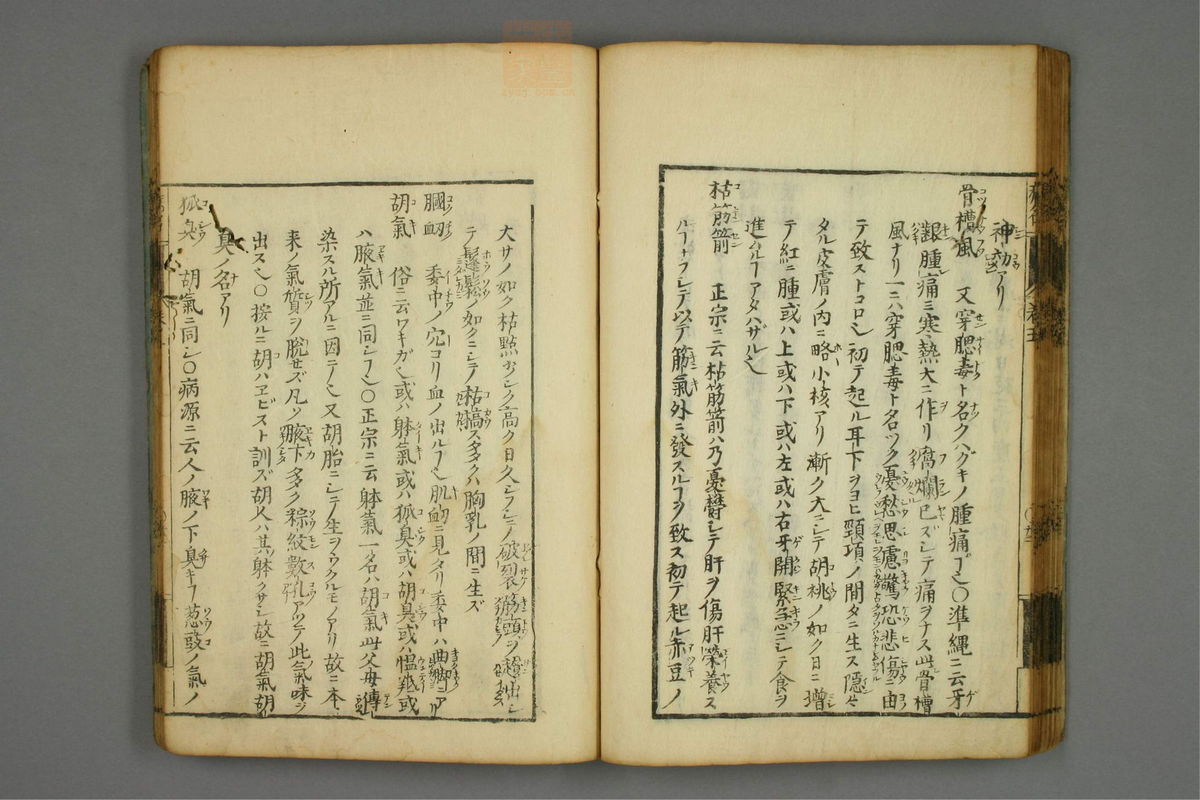 神効アリ
骨槽風 又穿腮毒ト名クハグキノ腫痛ヿ也〇準縄ニ云牙
齦腫痛ミ寒熱大ニ作リ腐爛已ズシテ痛ヲナス此骨槽
風ナリ一ニハ穿腮毒ト名ツク憂愁思慮驚恐悲傷ニ由
テ致ストコロ也初テ起ル耳下ヲヨヒ頸項ノ間タニ生ス隠
タル皮膚ノ内ニ略小核アリ漸ク大ニシテ胡桃ノ如ク日ニ増
テ紅ニ腫或ハ上或ハ下或ハ左或ハ右牙開緊急ニシテ食ヲ
進ルヿアタハザル也
枯筋箭 正宗ニ云枯筋箭ハ乃憂鬱シテ肝ヲ傷肝榮養ス
ルヿナフシテ以テ筋氣外ニ發スルヿヲ致ス初テ起ル赤豆ノ
大サノ如ク枯點シク高ク日久シテ破裂筋頭ヲ出シ
テ鬆ノ如クニシテ枯槁スタタハ胸乳ノ間ニ生ズ
膕䘐 委中ノ穴ヨリ血ノ出ルヿ也肌䘐ニ見タリ委中ハ曲䐐ニアリ
胡氣 俗ニ云ワキガ也或ハ躰氣或ハ狐臭或ハ胡臭或ハ慍羝或
ハ腋氣並ニ同シヿ也〇正宗ニ云躰氣一名ハ胡氣此父母傳
染スル所アルニ因テ也又胡胎ニシテ生ヲウクルモノアリ故ニ本
来ノ氣質ヲ脱セズ凡ソ腋下多ク稯紋數孔アツテ此氣味ヲ
出ス也〇按ルニ胡ハヱビスト訓ズ胡人ハ其躰クサシ故ニ胡氣胡
臭ノ名アリ
狐臭 胡氣ニ同シ〇病源ニ云人ノ腋ノ下臭キヿ葱豉ノ氣ノ